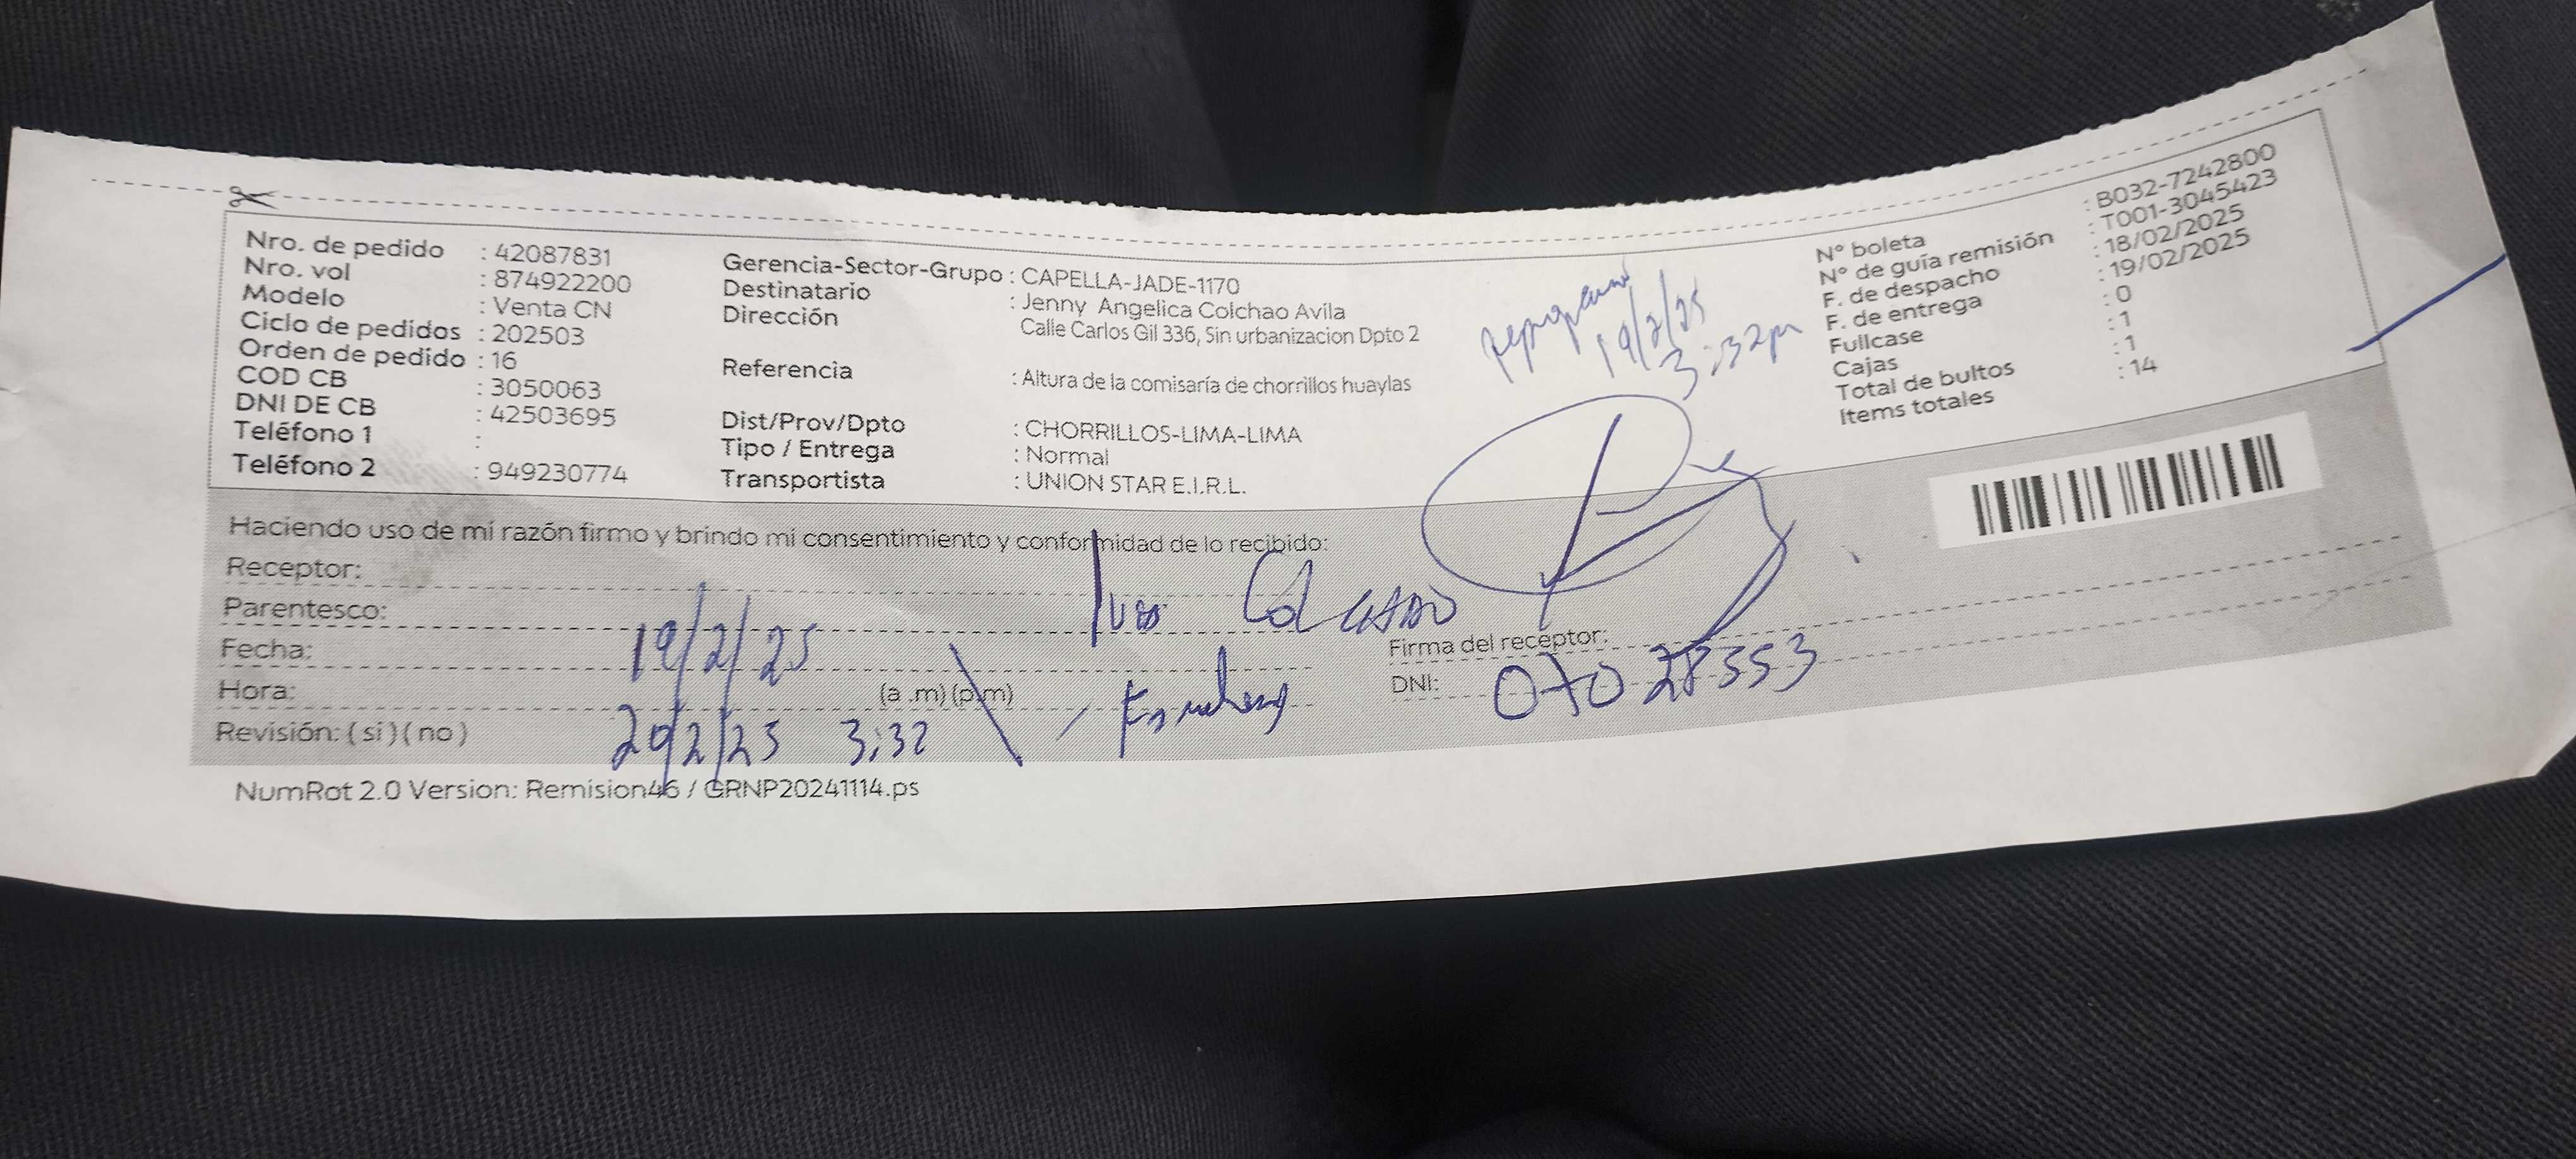 Nro. de pedido : 42087831
Nro. vol : 874922200
Modelo : Venta CN
Ciclo de pedidos : 202503
Orden de pedido : 16
COD CB : 3050063
DNI DE CB : 42503695
Teléfono 1 :
Teléfono 2 : 949230774
Gerencia-Sector-Grupo : CAPELLA-JADE-1170
Destinatario : Jenny Angelica Colchao Avila
Dirección Calle Carlos Gil 336, Sin urbanizacion Dpto 2
Referencia : Altura de la comisaría de chorrillos huaylas
Dist/Prov/Dpto : CHORRILLOS-LIMA-LIMA
Tipo / Entrega : Normal
Transportista : UNION STAR E.I.R.L.
19/2/25
3:32pm
N° boleta : B032-7242800
N° de guía remisión : T001-3045423
F. de despacho : 18/02/2025
F. de entrega : 19/02/2025
Fullcase : 0
Cajas : 1
Total de bultos : 1
Items totales : 14
Haciendo uso de mi razón firmo y brindo mi consentimiento y conformidad de lo recibido:
Receptor:
Parentesco: Colchao
Fecha: 19/2/25
Firma del receptor:
Hora: (a .m) (p.m)
DNI: 07028353
Revisión: ( si ) ( no ) 20/2/25 3:32
NumRot 2.0 Version: Remision46 / GRNP20241114.ps